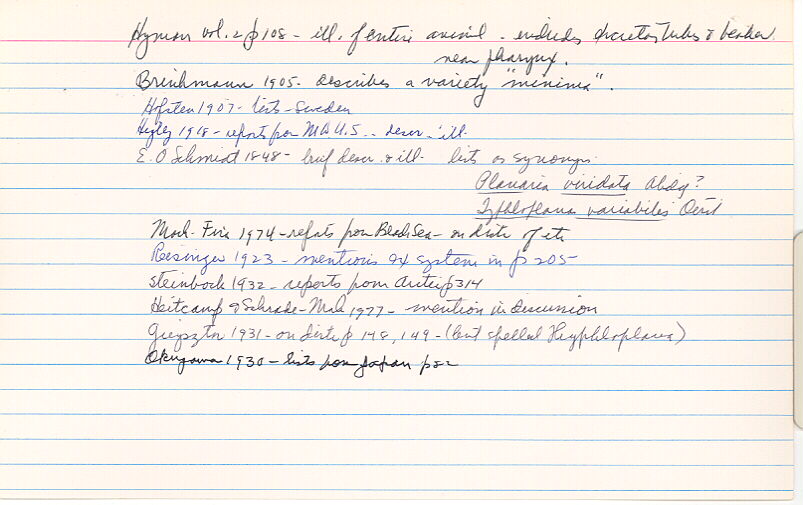 Hyman vol. 2 p 108 - ill. of entire animal - includes excretory tubes & beaker
near pharynx.
Brinkmann 1905 - describes a variety "minima".
Hofsten 1907 - lists - Sweden
Higley 1918 - reports from U.S. - descr. - ill.
E. O Schmidt 1848 - brief descr. & ill. lists as synonyms:
Planaria viridata Abdg?
Typhloplana variabilis Oerst
Mack-Fira 1974 - reports from Black Sea - on distr of etc
Reisinger 1923 - mentions ex system in p 205
Steinbock 1932 - reports from Arctic p 314
Heitcamp & Schrade-Mock 1977 - mention in discussion
Gieysztor 1931 - on distr p 148, 149 - (but spelled Thyphloplana)
Okugawa 1930 - lists from Japan p 2